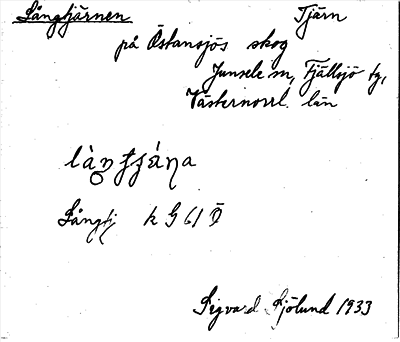 Långtjärnen Tjärn
på Östansjös skog
Junsele sn, Fjällsjö tg,
Västernorrl. län
Långtj k G 61 Ö
Sigvard Sjölund 1933